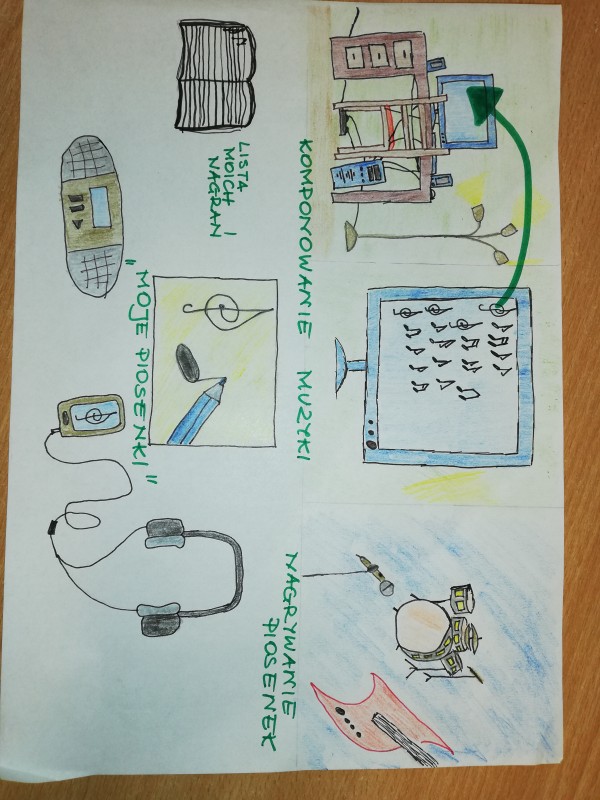 KOMPONOWANIE MUZYKI
NAGRYWANIE
PIOSENEK
LISTA
MOICH
NAGRAŃ
"MOJE PIOSENKI"